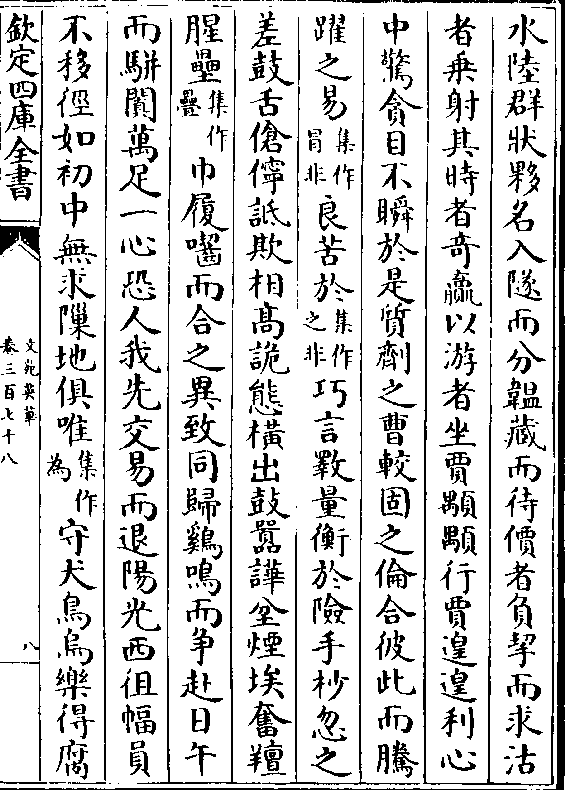 水陸群狀夥名入隧而分韞藏而待價者負挈而求沽
者乗射其時者奇贏以游者坐賈顒顒行賈遑遑利心
中驚貪目不瞬於是質劑之曹較固之倫合彼此而騰
躍之易集作冒非良苦於集作之非巧言斁量衡於險手杪忽之
差鼓舌傖儜詆欺相髙詭態橫出鼓囂譁坌煙埃奮羶
腥壘集作疊巾履囓而合之異致同歸雞鳴而争赴日午
而駢闐萬足一心恐人我先交易而退陽光西徂幅員
不移徑如初中無求隟地俱唯集作為守犬鳥烏樂得腐
欽定四庫全書
文苑英華
卷三百七十八
八